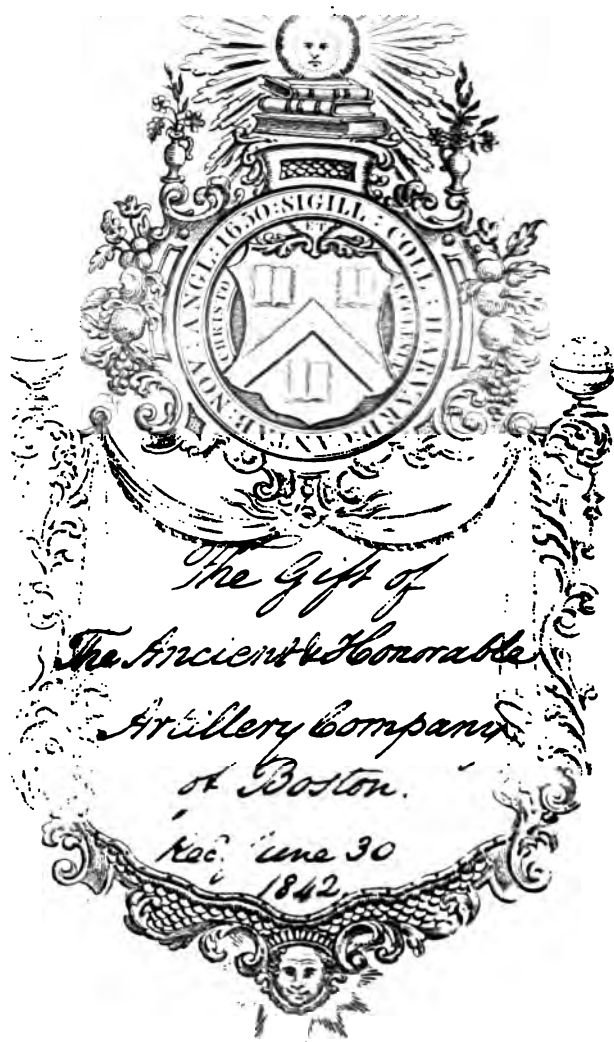 SIGILL : COLL : HARVARD : CANTAB : NOV : ANGL : 1650 :
CHRISTO ET ECCLESIÆ
The Gift of
The Ancient & Honorable
Artillery Company
of Boston.
Rec<sup>d</sup> June 30
1842